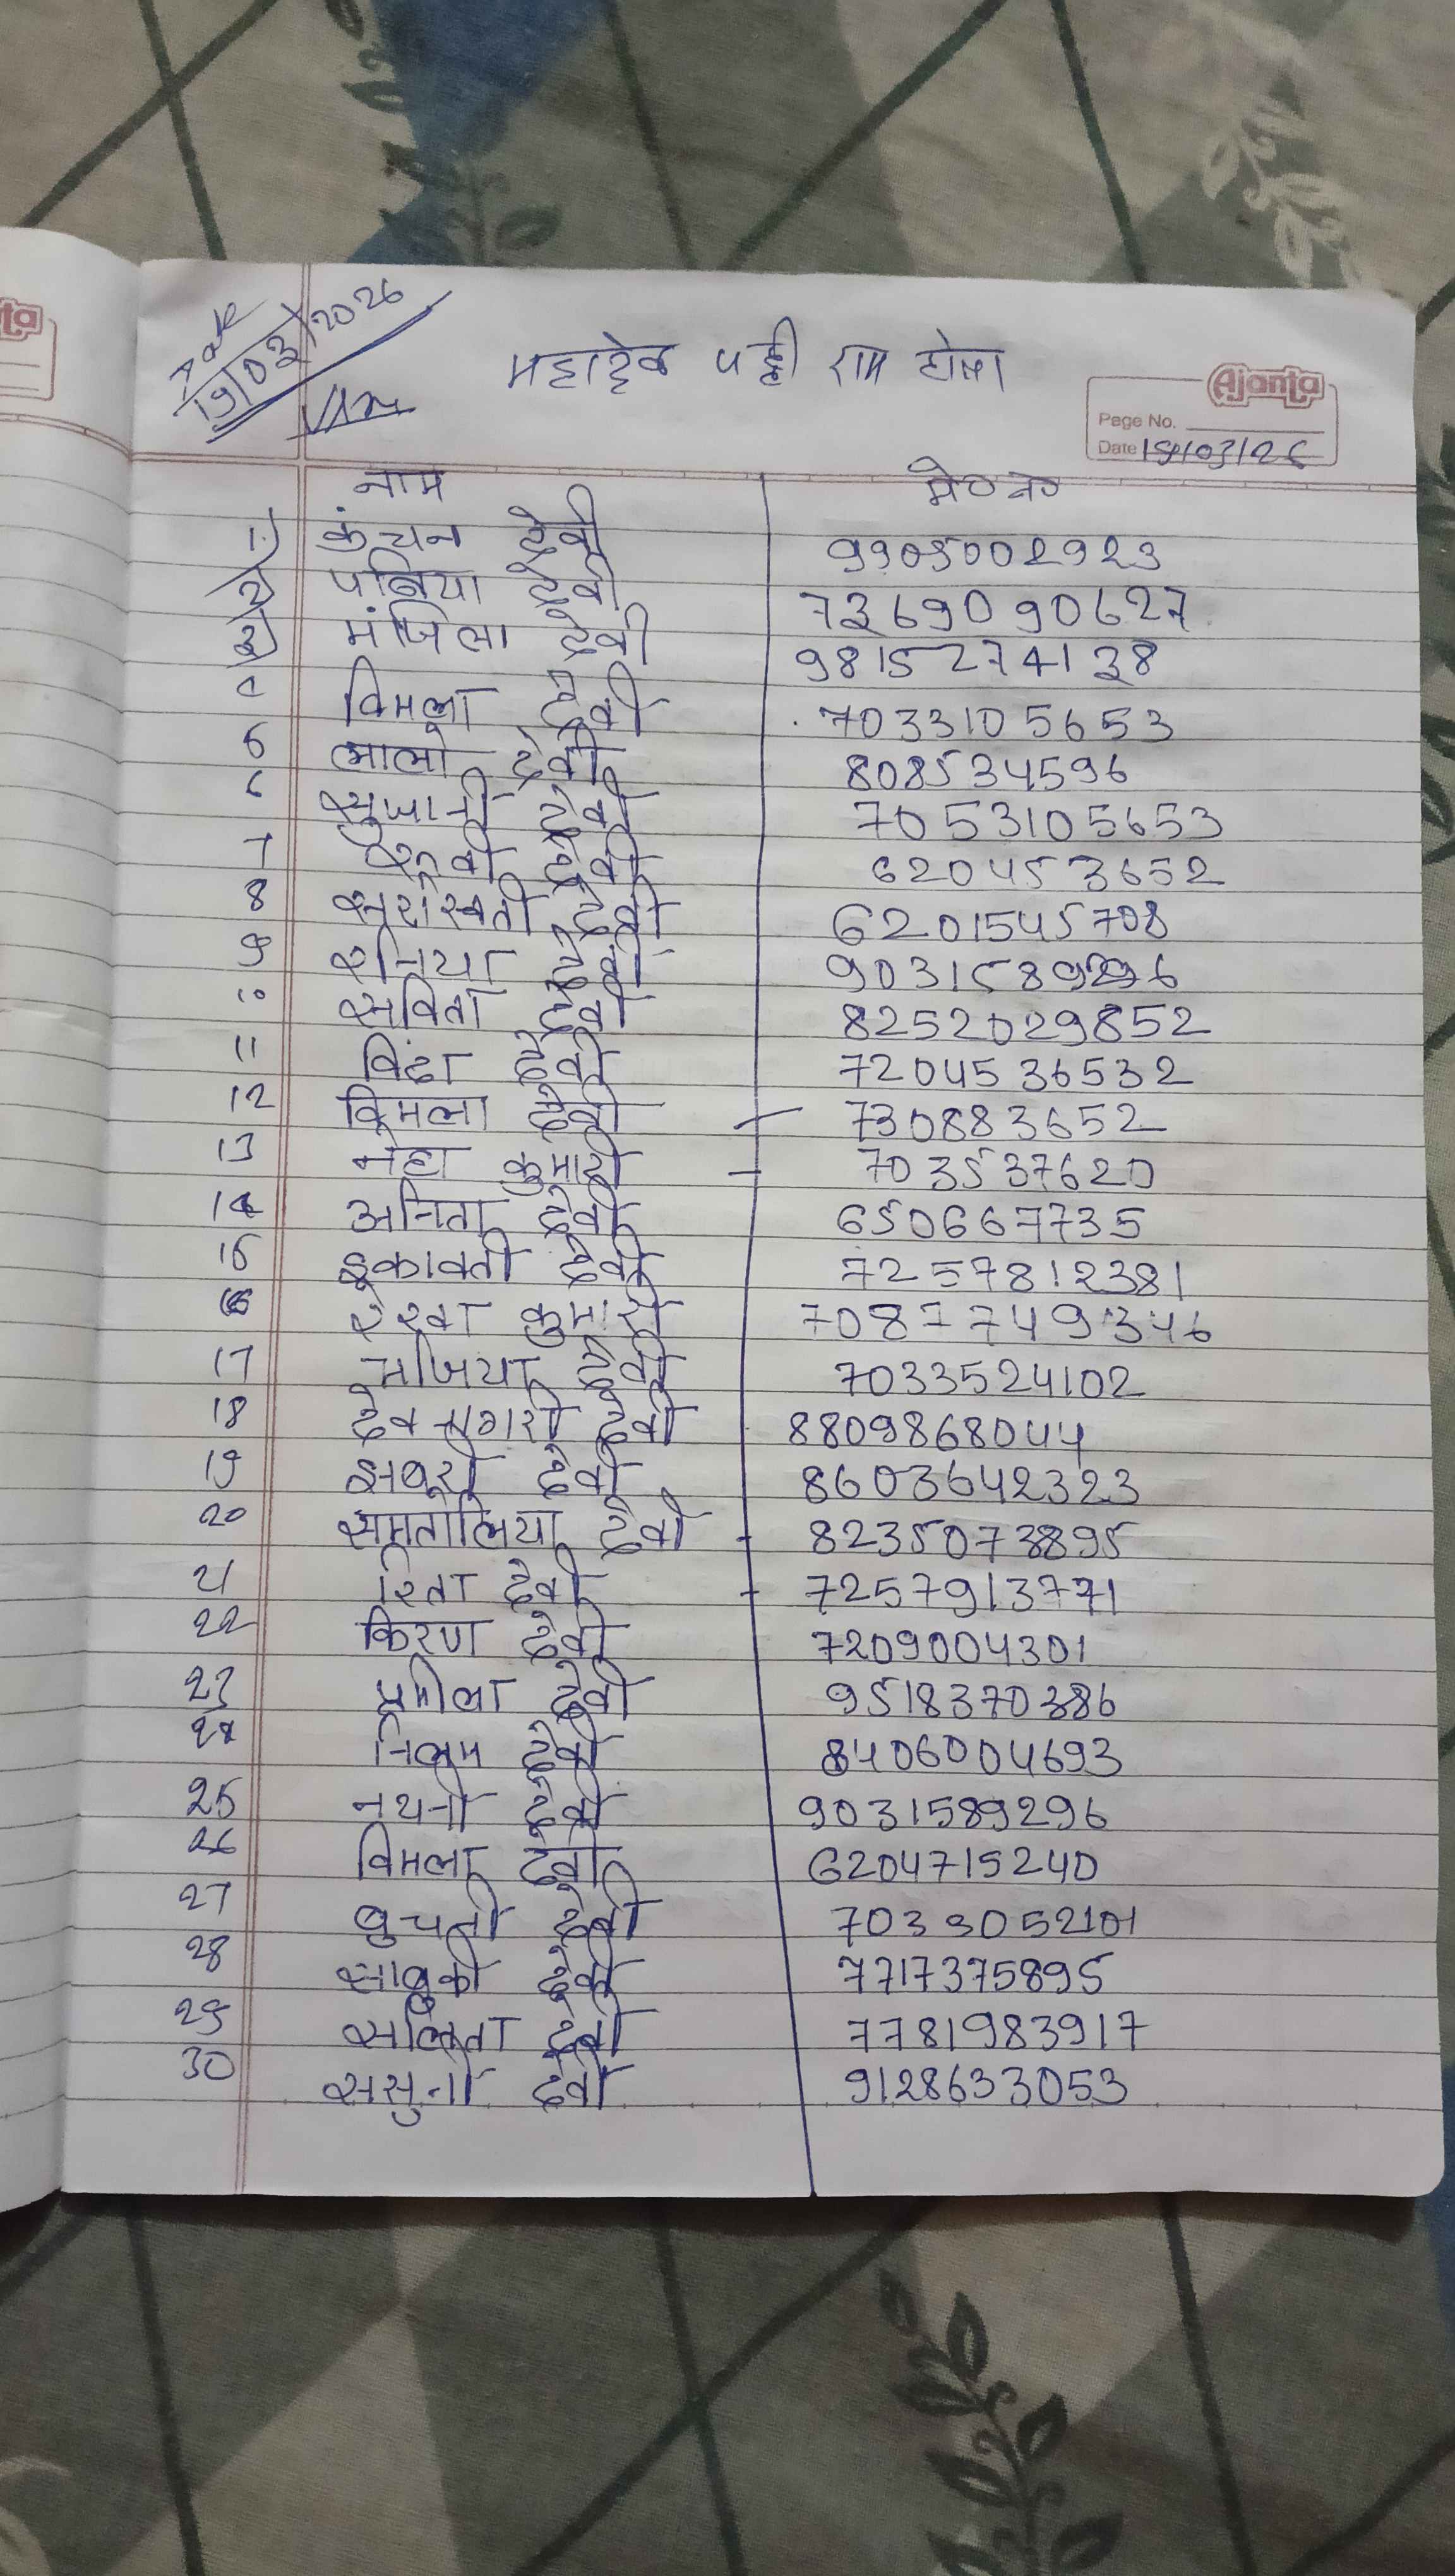 Date
19/03/2026
महादेव पट्टी राम टोला
Ajanta
Page No.
Date 19/03/26
नाम मो० न०
1) कंचन देवी 9905002923
2) पनिया देवी 7369090627
3) मंजिला देवी 9815274138
विमला देवी 7033105653
5 लालो देवी 808534596
6 सुखानी देवी 7053105653
7 रूबी देवी 6204453652
8 सरोस्वती देवी 6201545708
9 रनिया देवी 9031589296
10 सविता देवी 8252029852
11 विंदा देवी 7204536532
12 विमला देवी - 730883652
13 नेहा कुमारी - 703537620
14 अनिता देवी 650667735
15 इकावती देवी 7257812381
16 रेखा कुमारी 7087749346
17 मजिया देवी 7033524102
18 देव नागरी देवी 8809868044
19 झबूरी देवी 8603642323
20 समतोलिया देवी - 8235073895
21 रिता देवी - 7257913771
22 किरण देवी 7209004301
23 प्रमीला देवी 9518370386
24 निलम देवी 8406004693
25 नथनी देवी 9031589296
26 विमला देवी 6204715240
27 बुचनी देवी 7033052101
28 साबुकी देवी 7717375895
29 सलिता देवी 7781983917
30 ससुनी देवी 9128633053